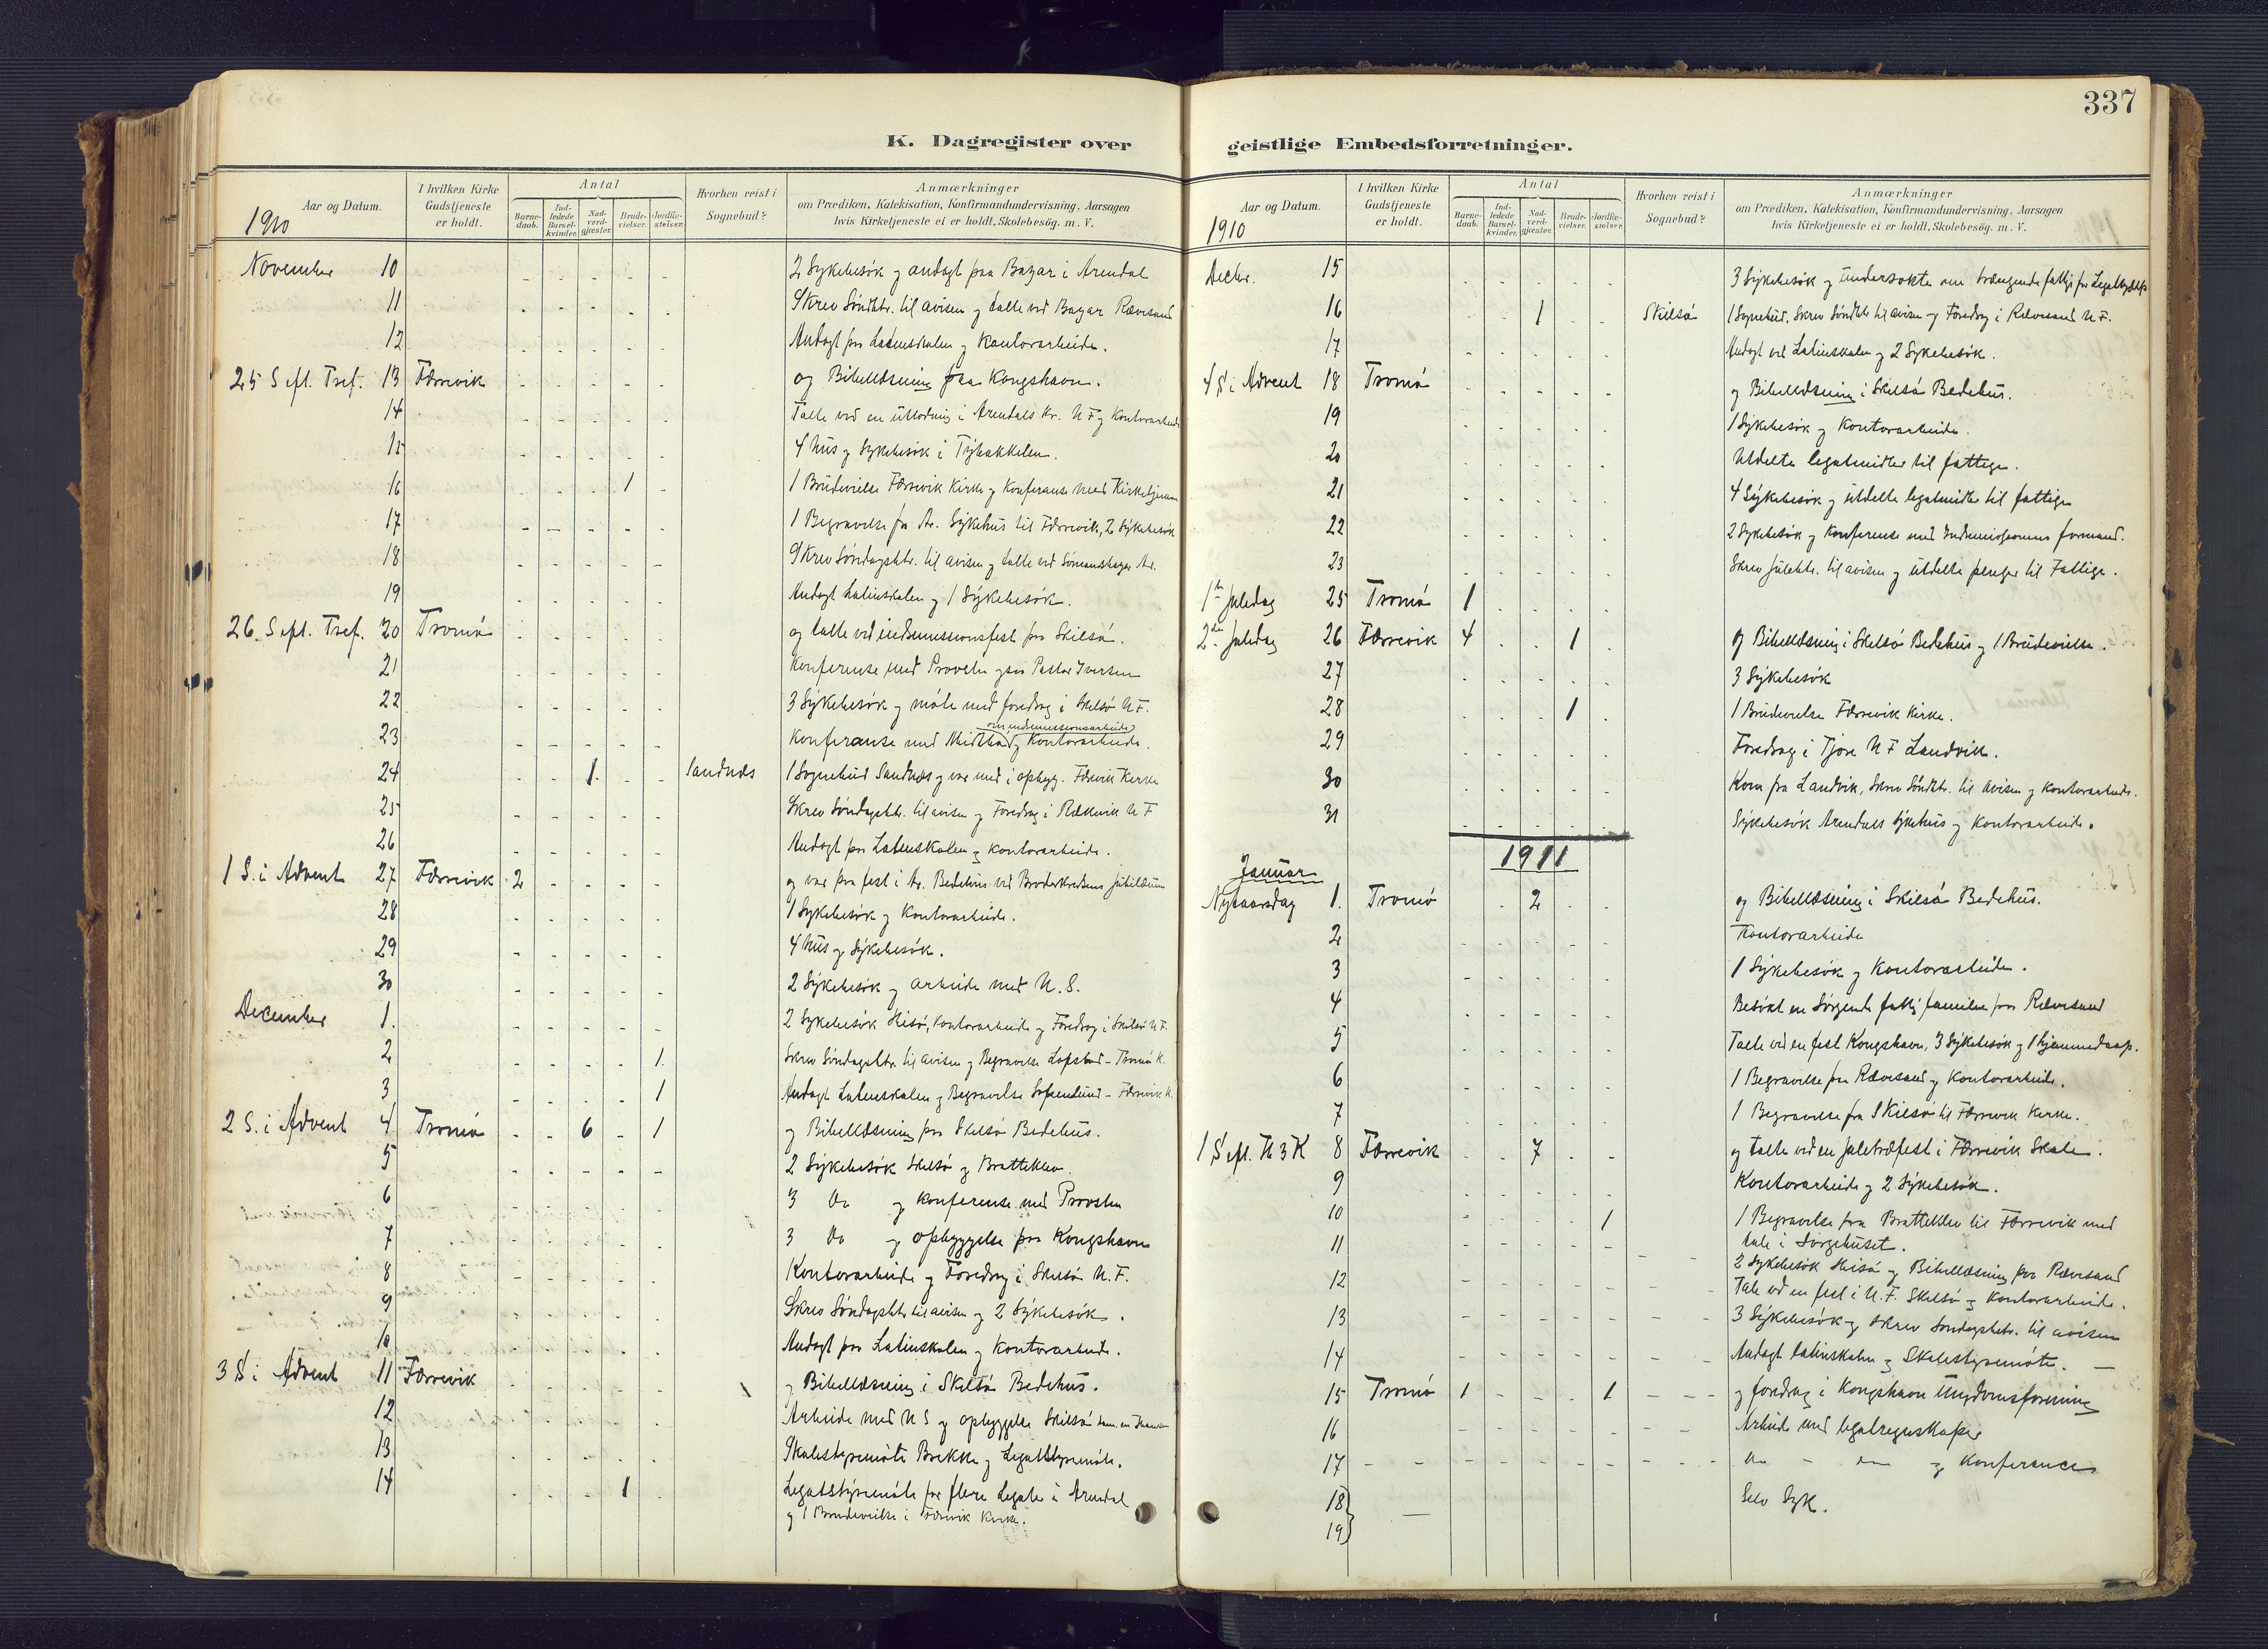 337
K. Dagregister over geistlige Embedsforretninger.
Aar og Datum.
I hvilken Kirke Gudstjeneste er holdt.
Antal
Barnedaab.
Indledede Barselkvinder.
Nadverdgjæster.
Brudevielser.
Jordfæstelser.
Hvorhen reist i Sognebud?
Anmærkninger
om Prædiken, Katekisation, Konfirmandundervisning, Aarsagen
hvis Kirketjeneste ei er holdt, Skolebesög. m. V.
1910
November 10 2 Sykebesøk og andagt paa Bazar i Arendal
11 Skrev Søndbtr. til avisen og talte ved Bazar Rævesand
12 Andagt paa Latinskolen og Kontorarbeide.
25 S eft. Tref. 13 Færevik og Bibellæsning paa Kongshavn.
14 Talte ved en utlodning i Arendals Kr. U F og Kontorarbeide
15 4 Hus og Sykebesøk i Tybakkelen.
16 1 1 Brudevielse Færevik Kirke og Konferanse med Kirketjeneren
17 1 Begravelse fra Ar. Sykehus til Færevik, 2 Sykebesøk
18 Skrev Søndagsbtr. til avisen og talte ved Sømansbazar Ar.
19 Andagt Latinskolen og 1 Sykebesøk.
26. S eft. Tref. 20 Tromø og talte ved indremissionsfest paa Skilsø.
21 Konferense med Provsten og Pastor Iversen
22 3 Sykebesøk og møte med foredrag i Skilsø U F.
23 Konferanse med om indremissionsarbeide og Kontorarbeide.
24 1. Sandnes 1 Sognebud Sandnes og var med i opbyg. Færevik Kirke
25 Skrev Søndagsbtr. til avisen og Foredrag i U F
26 Andagt paa Latinskolen og kontorarbeide.
1 S. i Advent 27 Færevik 2 og var paa fest i Ar. Bedehus ved Broderkredsens Jubilæum
28 1 Sykebesøk og Kontorarbeide.
29 4 Hus og Sykebesøk.
30 2 Sykebesøk og arbeide med U. S.
December 1. 2 Sykebesøk Hisø, Kontorarbeide og Foredrag i Skilsø U F.
2 1. Skrev Søndagsbtr. til avisen og Begravelse Lofstad - Tromø K.
3 1 Andagt Latinskolen og Begravelse - Færevik K.
2 S. i Advent 4 Tromø 6 1 og Bibellæsning paa Skilsø Bedehus.
5 2 Sykebesøk Skilsø og Bratteklev.
6 3 Do og Konferense med Provsten
7 3 Do og opbyggelse paa Kongshavn
8 Kontorarbeide og Foredrag i Skilsø U. F.
9 Skrev Søndagsbtr til avisen og 2 Sykebesøk.
10 Andagt paa Latinskolen og Kontorarbeide.
3 S i Advent 11 Færevik og Bibellæsning i Skilsø Bedehus.
12 Arbeide med U S og opbyggelse Skilsø
13 Skolestyremøte Brekke og Legatstyremøte.
14 1 Legatstyremøte for flere Legater i Arendal
og 1 Brudevielse i Færevik Kirke.
1910
Decbr. 15 3 Sykebesøk og undersøkte om trængende fattige for
16 1 Skilsø 1 Sognebud, Skrev Søndbtr til avisen og Foredrag i Rævesand U F.
17 Andagt ved Latinskolen og 2 Sykebesøk.
4 S i Advent 18 Tromø og Bibellæsning i Skilsø Bedehus.
19 1 Sykebesøk og Kontorarbeide.
20 Utdelte legatmidler til fattige.
21 4 Sykebesøk og utdelte legatmidler til fattige
22 2 Sykebesøk og Konferense med Indremissionens formand.
23 Skrev Julebtr. til avisen og utdelte penger til Fattige.
1ste Juledag 25 Tromø 1
2den Juledag 26 Færevik 4 1 og Bibellæsning i Skilsø Bedehus og 1 Brudevielse.
27 3 Sykebesøk
28 1 1 Brudevielse Færevik Kirke.
29 Foredrag i Tjore U F Landvik.
30 Kom fra Landvik, Skrev Søndbtr. til avisen og Kontorarbeide.
31 Sykebesøk Arendals Sykehus og Kontorarbeide.
1911
Januar
Nytaarsdag 1. Tromø 2 og Bibellæsning i Skilsø Bedehus.
2 Kontorarbeide
3 1 Sykebesøk og Kontorarbeide.
4 Besøkt en Sørgende fattig familie paa Rævesand
5 Talte ved en fest Kongshavn, 3 Sykebesøk og 1 hjemmedaap.
6 1 Begravelse paa Rævesand og Kontorarbeide.
7 1 Begravelse fra Skilsø til Færevik Kirke.
1 S eft. H 3 K 8 Færevik 7 og talte ved en Juletræfest i Færevik Skole.
9 Kontorarbeide og 2 Sykebesøk.
10 1 1 Begravelse fra Bratteklev til Færevik med
tale i Sørgehuset.
11 2 Sykebesøk Hisø og Bibellæsning paa Rævesand
12 Tale ved en fest i U. F. Skilsø og Kontorarbeide.
13 3 Sykebesøk og skrev Søndagsbetr. til avisen
14 Andagt Latinskolen og Skolestyremøte. —
15 Tromø 1 1 og foredrag i Kongshavn Ungdomsforening
16 Arbeide med legatregnskaper
17 Do - do og Konferance
18
19 Selv Syk.